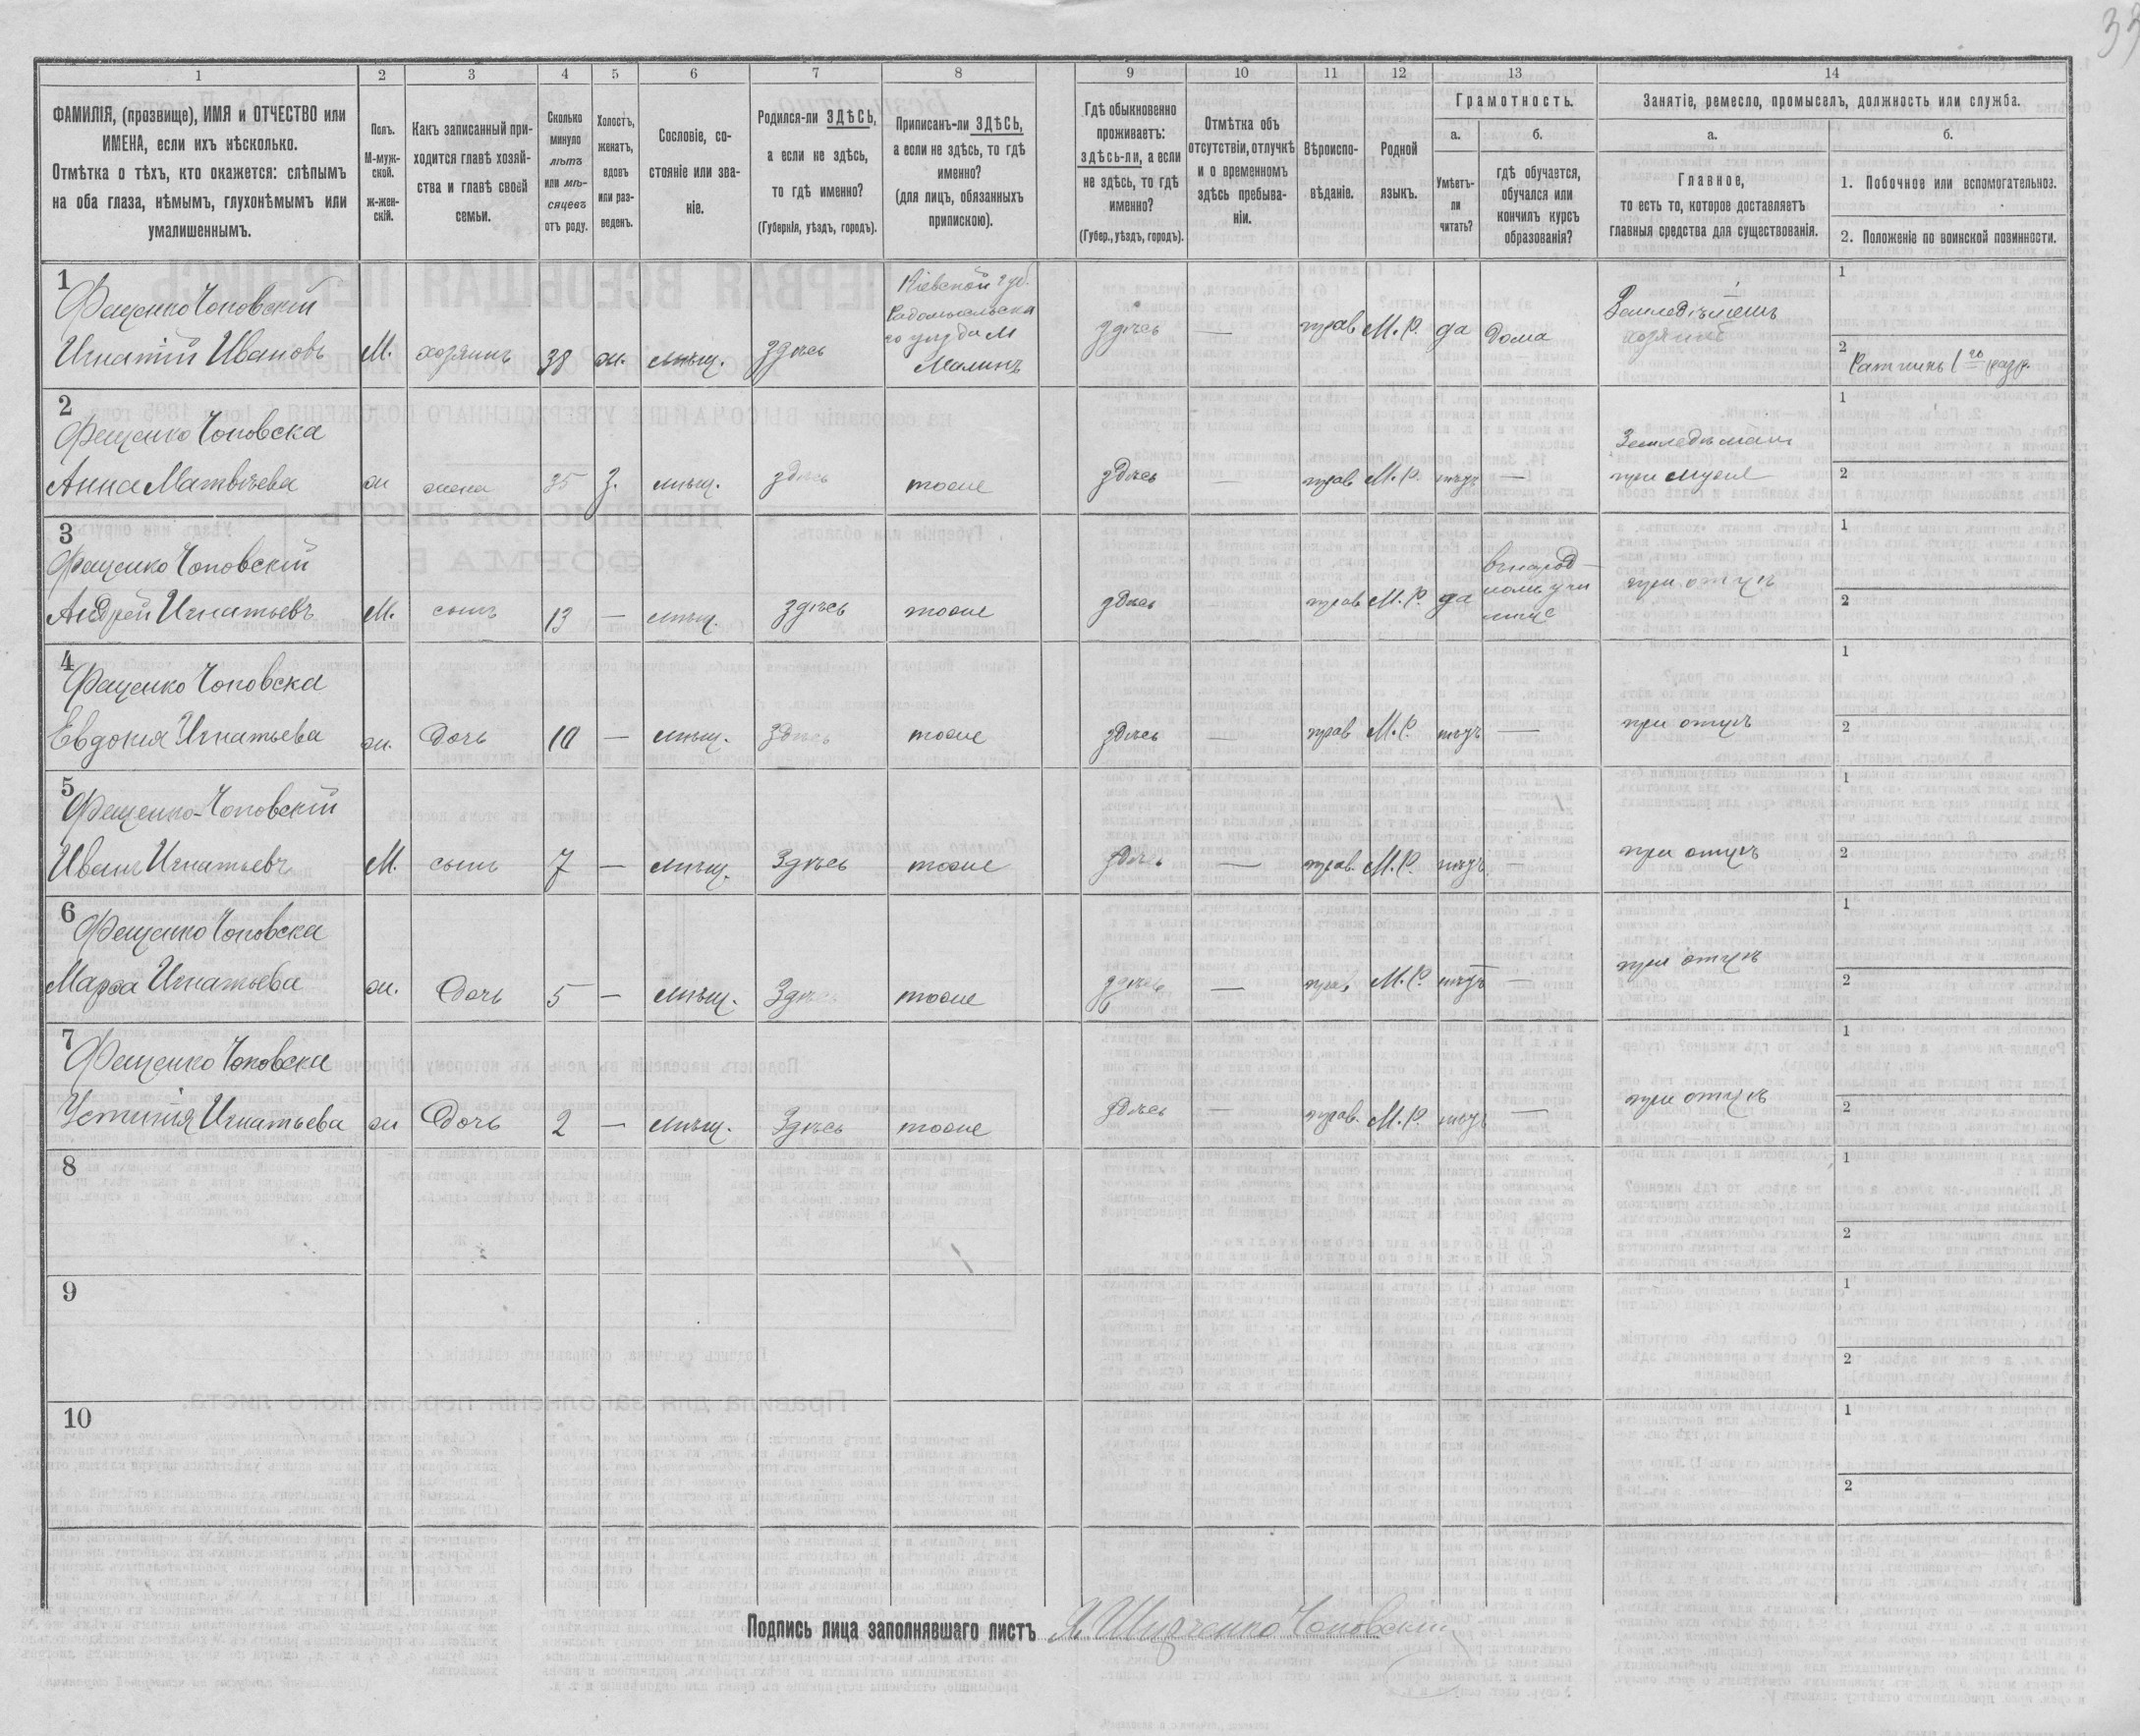 33
1 2 3 4 5 6 7 8 9 10 11 12 13 14
ФАМИЛІЯ, (прозвище), ИМЯ и ОТЧЕСТВО или
ИМЕНА, если ихъ нѣсколько.
Отмѣтка о тѣхъ, кто окажется: слѣпымъ
на оба глаза, нѣмымъ, глухонѣмымъ или
умалишеннымъ.
Полъ.
М-муж-
ской.
ж-жен-
скій.
Какъ записанный при-
ходится главѣ хозяй-
ства и главѣ своей
семьи.
Сколько
минуло
лѣтъ
или мѣ-
сяцевъ
отъ роду.
Холостъ,
женатъ,
вдовъ
или раз-
веденъ.
Сословіе, со-
стояніе или зва-
ніе.
Родился-ли ЗДѢСЬ,
а если не здѣсь,
то гдѣ именно?
(Губернія, уѣздъ, городъ).
Приписанъ-ли ЗДѢСЬ,
а если не здѣсь, то гдѣ
именно?
(для лицъ, обязанныхъ
припискою).
Гдѣ обыкновенно
проживаетъ:
здѣсь-ли, а если
не здѣсь, то гдѣ
именно?
(Губер., уѣздъ, городъ).
Отмѣтка объ
отсутствіи, отлучкѣ
и о временномъ
здѣсь пребыва-
ніи.
Вѣроиспо-
вѣданіе.
Родной
языкъ.
Грамотность.
а.
Умѣетъ-
ли
читать?
б.
гдѣ обучается,
обучался или
кончилъ курсъ
образованія?
Занятіе, ремесло, промыселъ, должность или служба.
а.
Главное,
то есть то, которое доставляетъ
главныя средства для существованія.
б.
1. Побочное или вспомогательное.
2. Положеніе по воинской повинности.
1
Фещенко Чоповскій
Игнатій Ивановъ М. хозяинъ 38 ж. мѣщ. здѣсь
Кіевской губ.
Радомысльска
го уѣзда М
Малинъ
здѣсь — прав. М.Р. да дома
Земледѣлецъ
хозяинъ
1
2 Ратникъ 1го разр.
2
Фещенко Чоповска
Анна Матвѣева ж жена 35 з. мѣщ. здѣсь тоже здѣсь — прав. М.Р. нѣтъ —
Земледѣлец
при мужѣ
1
2
3
Фещенко Чоповскій
Андрей Игнатьевъ М. сынъ 13 — мѣщ. здѣсь тоже здѣсь — прав. М.Р. да
въ народ-
номъ учи
лищѣ
при отцѣ
1
2
4
Фещенко Чоповска
Евдокія Игнатьева ж. дочь 10 — мѣщ. здѣсь тоже здѣсь — прав М.Р. нѣтъ — при отцѣ
1
2
5
Фещенко-Чоповскій
Иванъ Игнатьевъ М. сынъ 7 — мѣщ. Здѣсь тоже здѣсь — прав. М.Р. нѣтъ — при отцѣ
1
2
6
Фещенко Чоповска
Марѳа Игнатьева ж. дочь 5 — мѣщ. Здѣсь тоже здѣсь — прав. М.Р. нѣтъ — при отцѣ
1
2
7
Фещенко Чоповска
Устинія Игнатьева ж дочь 2 — мѣщ. Здѣсь тоже здѣсь — прав. М.Р. нѣтъ — при отцѣ
1
2
8
1
2
9
1
2
10
1
2
Подпись лица заполнявшаго листъ Чоповскій